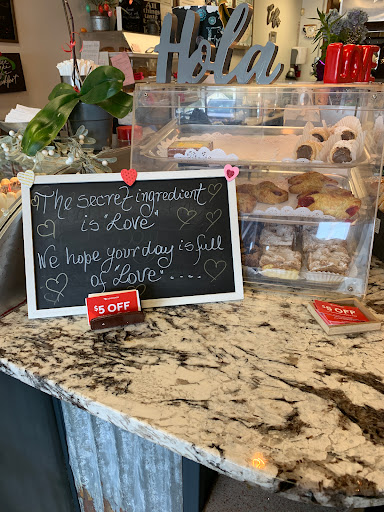 Hola
The secret ingredient
is "Love"
We hope your day is full
of "Love" ....
$5 OFF
$5 OFF